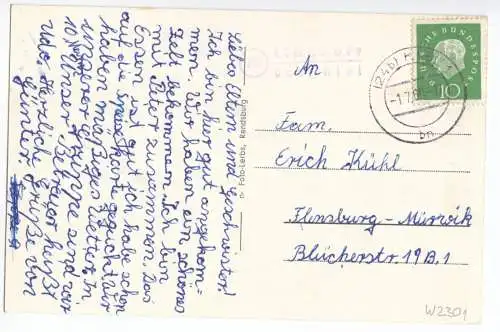 Liebe Eltern und Geschwister!
Ich bin hier gut angekom=
men. Wir haben ein schönes
Zelt bekommen. Ich bin
mit Peter zusammen. Das
Essen ist gut ich habe schon
auf die gedacht. Wir
haben mäßiges Wetter. In
unserer Gruppe sind wir
10. Unser Betreuer heißt
Udo. Herzliche Grüße von
Günter
n Foto-Lerbs, Rendsburg
(24b)
-1.7.6
bn
DEUTSCHE BUNDESPOST
10
An
Fam.
Erich Kühl
Flensburg-Mürwik
Blücherstr. 19 B, 1
W2301